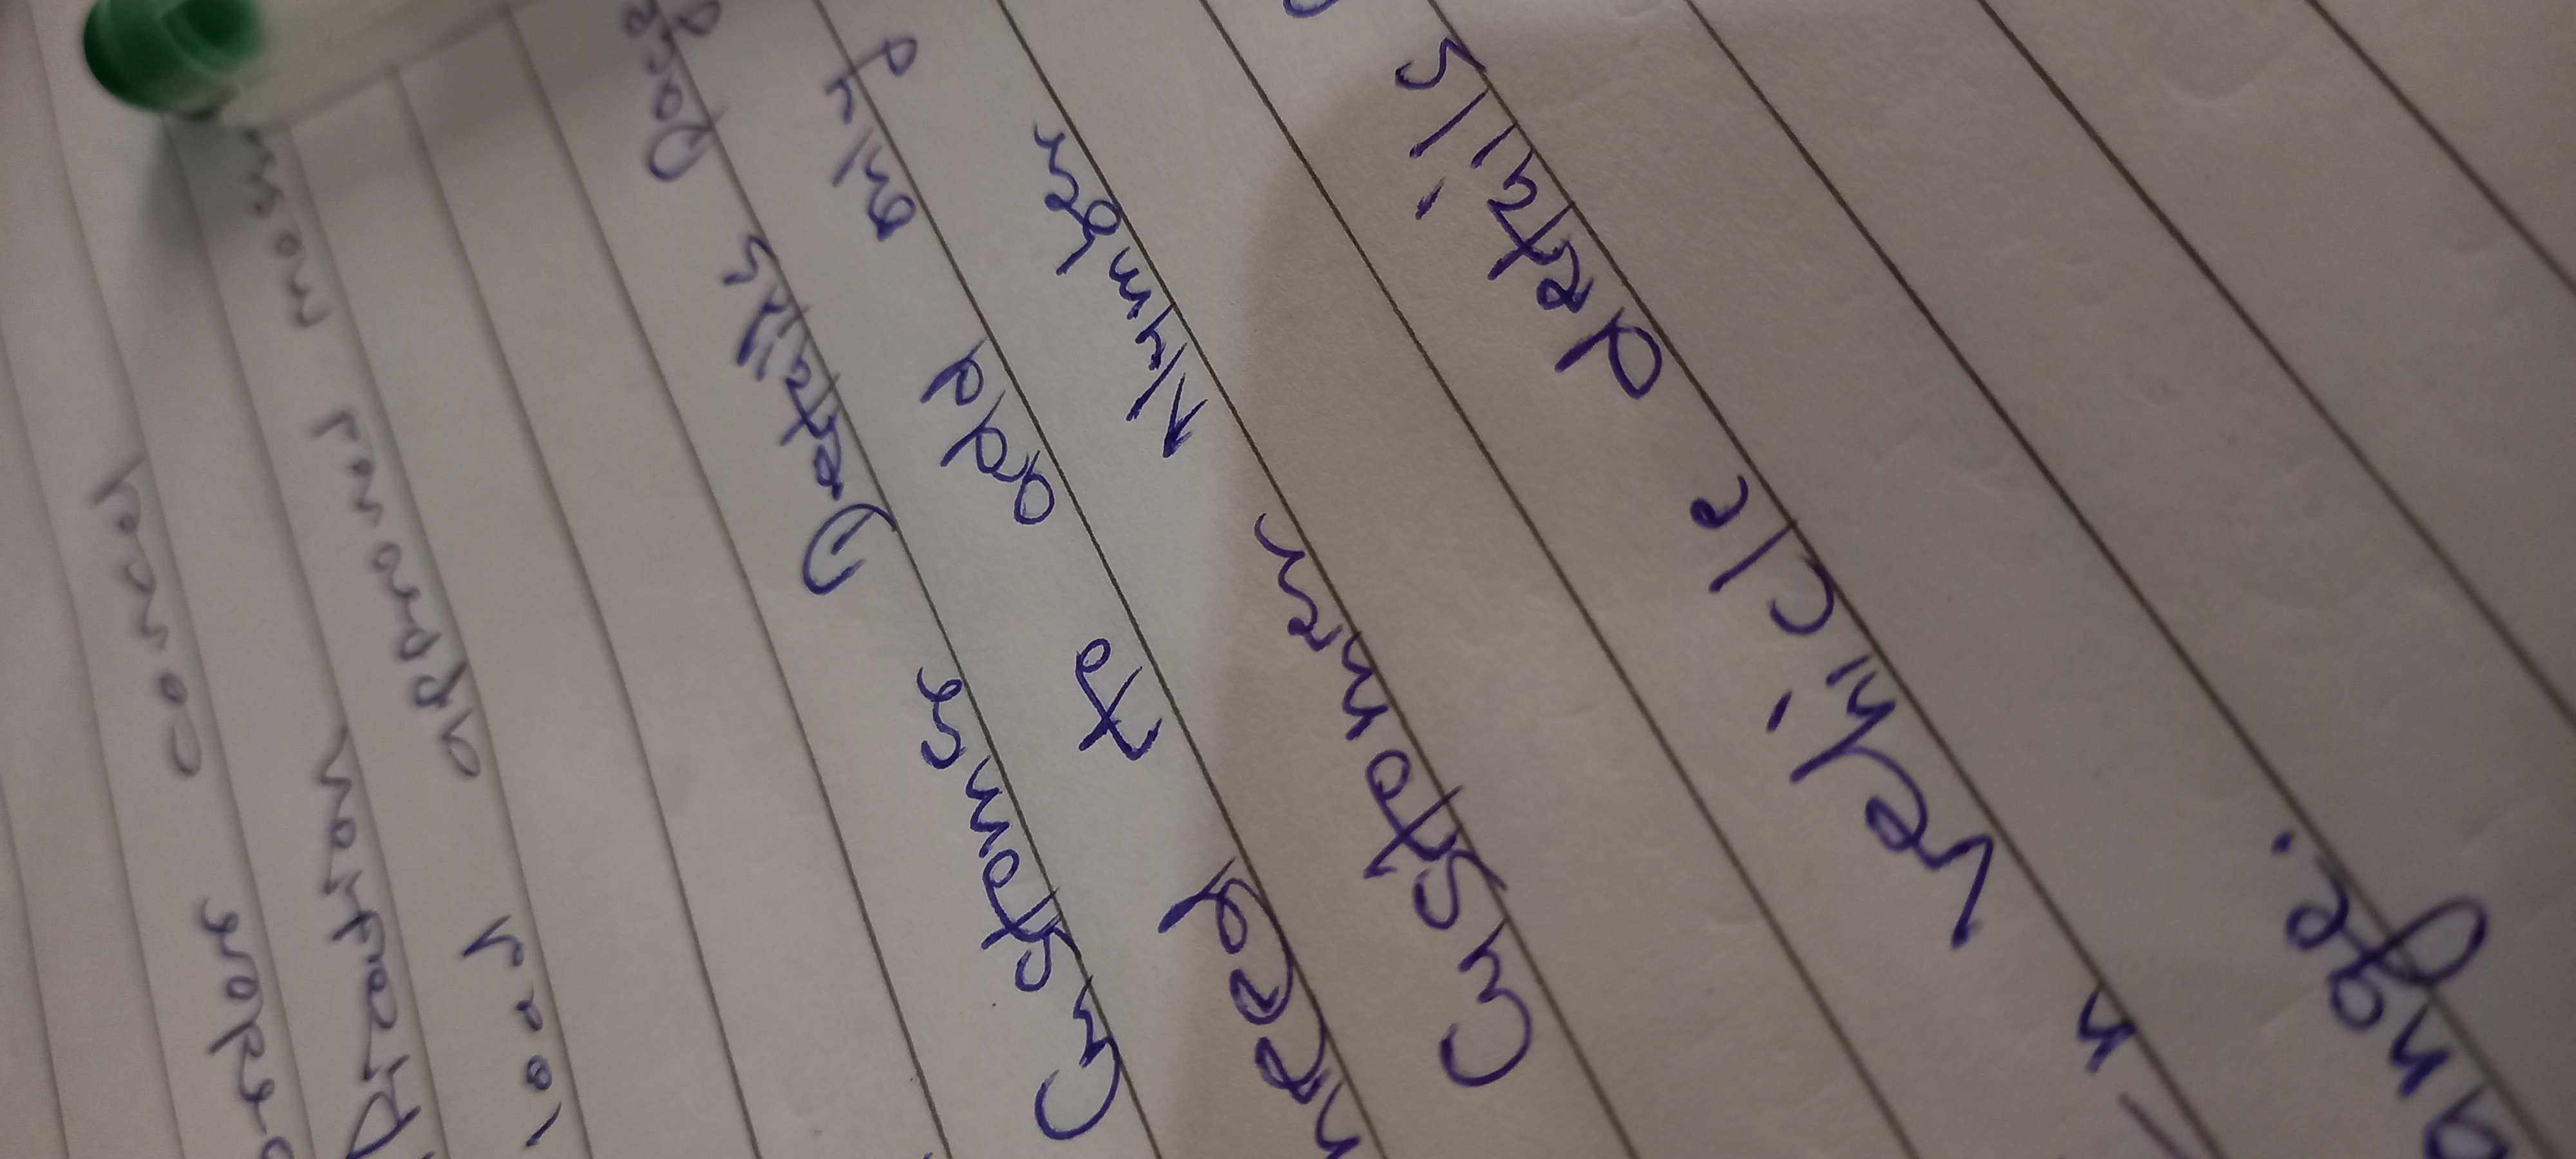 order cancel
fication
load approved messa
Customer Details Page
need to add only
Customer Number
In vehicle details
ange.